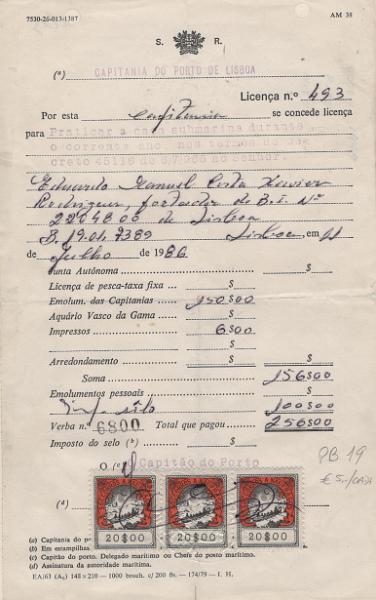 7530-26-013-1387
AM 38
S. R.
(a) CAPITANIA DO PORTO DE LISBOA
Licença n.º 493
Por esta capitania se concede licença
para Praticar a caça submarina durante
o corrente ano nos termos do De-
creto 45116 de 6/7/963 ao Senhor.
Eduardo Manuel Costa Xavier
Rodrigues, portador do B.I. Nº
de Lisboa
Lisboa, em
de Julho de 1986
Junta Autónoma $
Licença de pesca-taxa fixa ... $
Emolum. das Capitanias ... 150$00
Aquário Vasco da Gama ... $
Impressos 6$00
$
Arredondamento $
Soma 156$00
Emolumentos pessoais $
Imp. selo 100$00
Verba n.º 6800 Total que pagou 256$00
Imposto do selo (b) $
O (c) Capitão do Porto
PB 19
€ 5-/CADA
(d)
20$00 20$00 20$00
(a) Capitania do po
(b) Em estampilhas.
(c) Capitão do porto. Delegado marítimo ou Chefe do posto marítimo.
(d) Assinatura da autoridade marítima.
EA/63 (A5) 148×210 — 1000 broch. c/ 200 fls. — 174/79 — I. H.